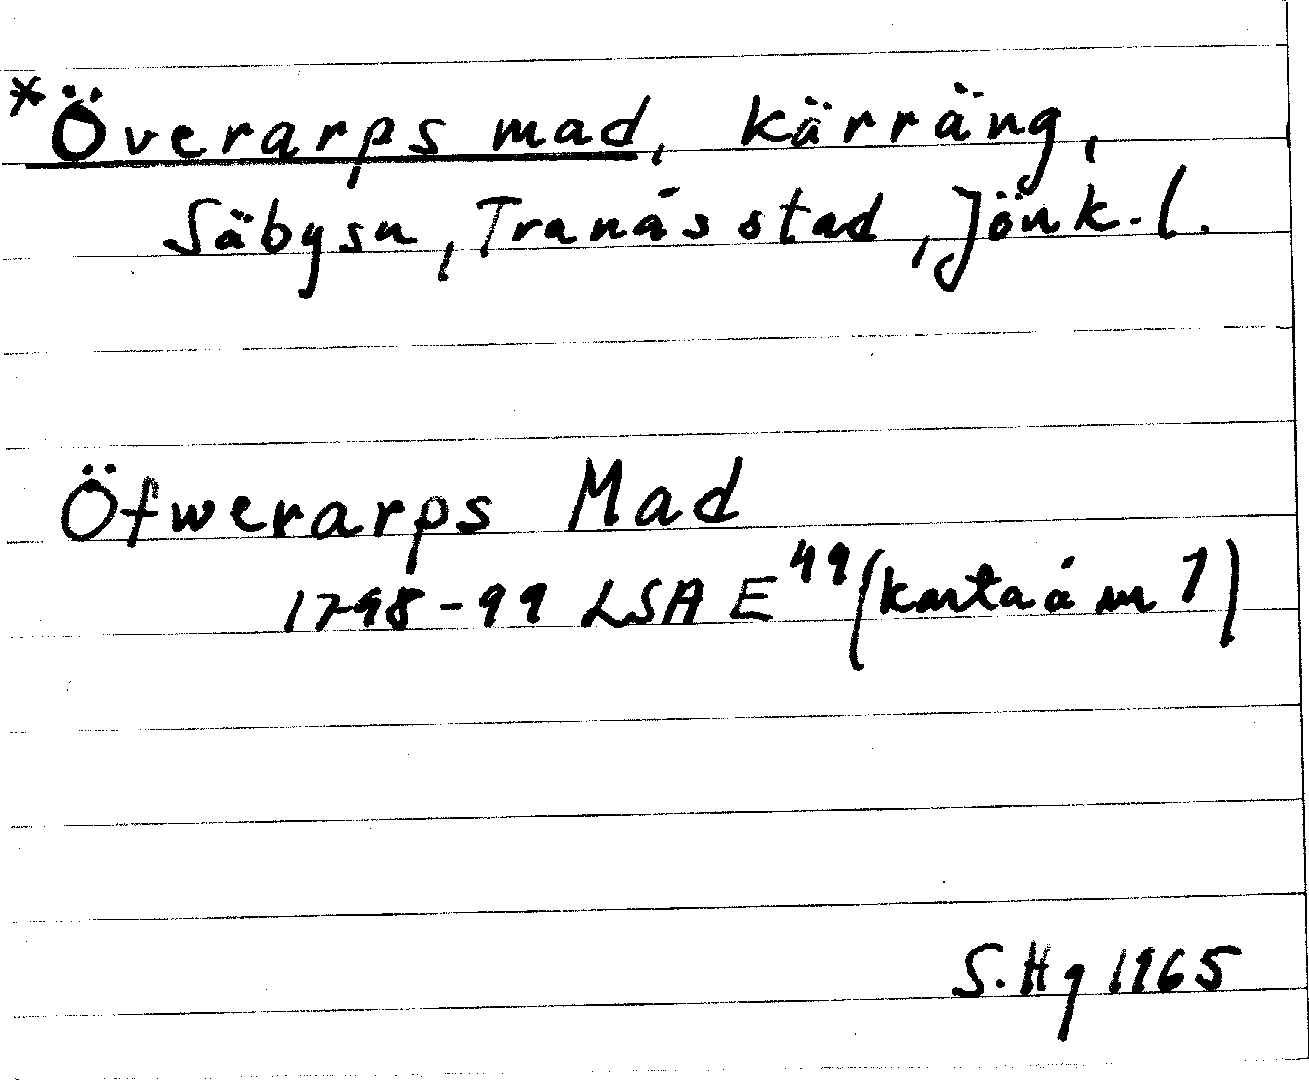 *Överarps mad, kärräng,
Säbysn, Tranås stad, Jönk. l.
Öfwerarps Mad
1798-99 LSA E 49 (karta á nr 1)
S. Hg 1965